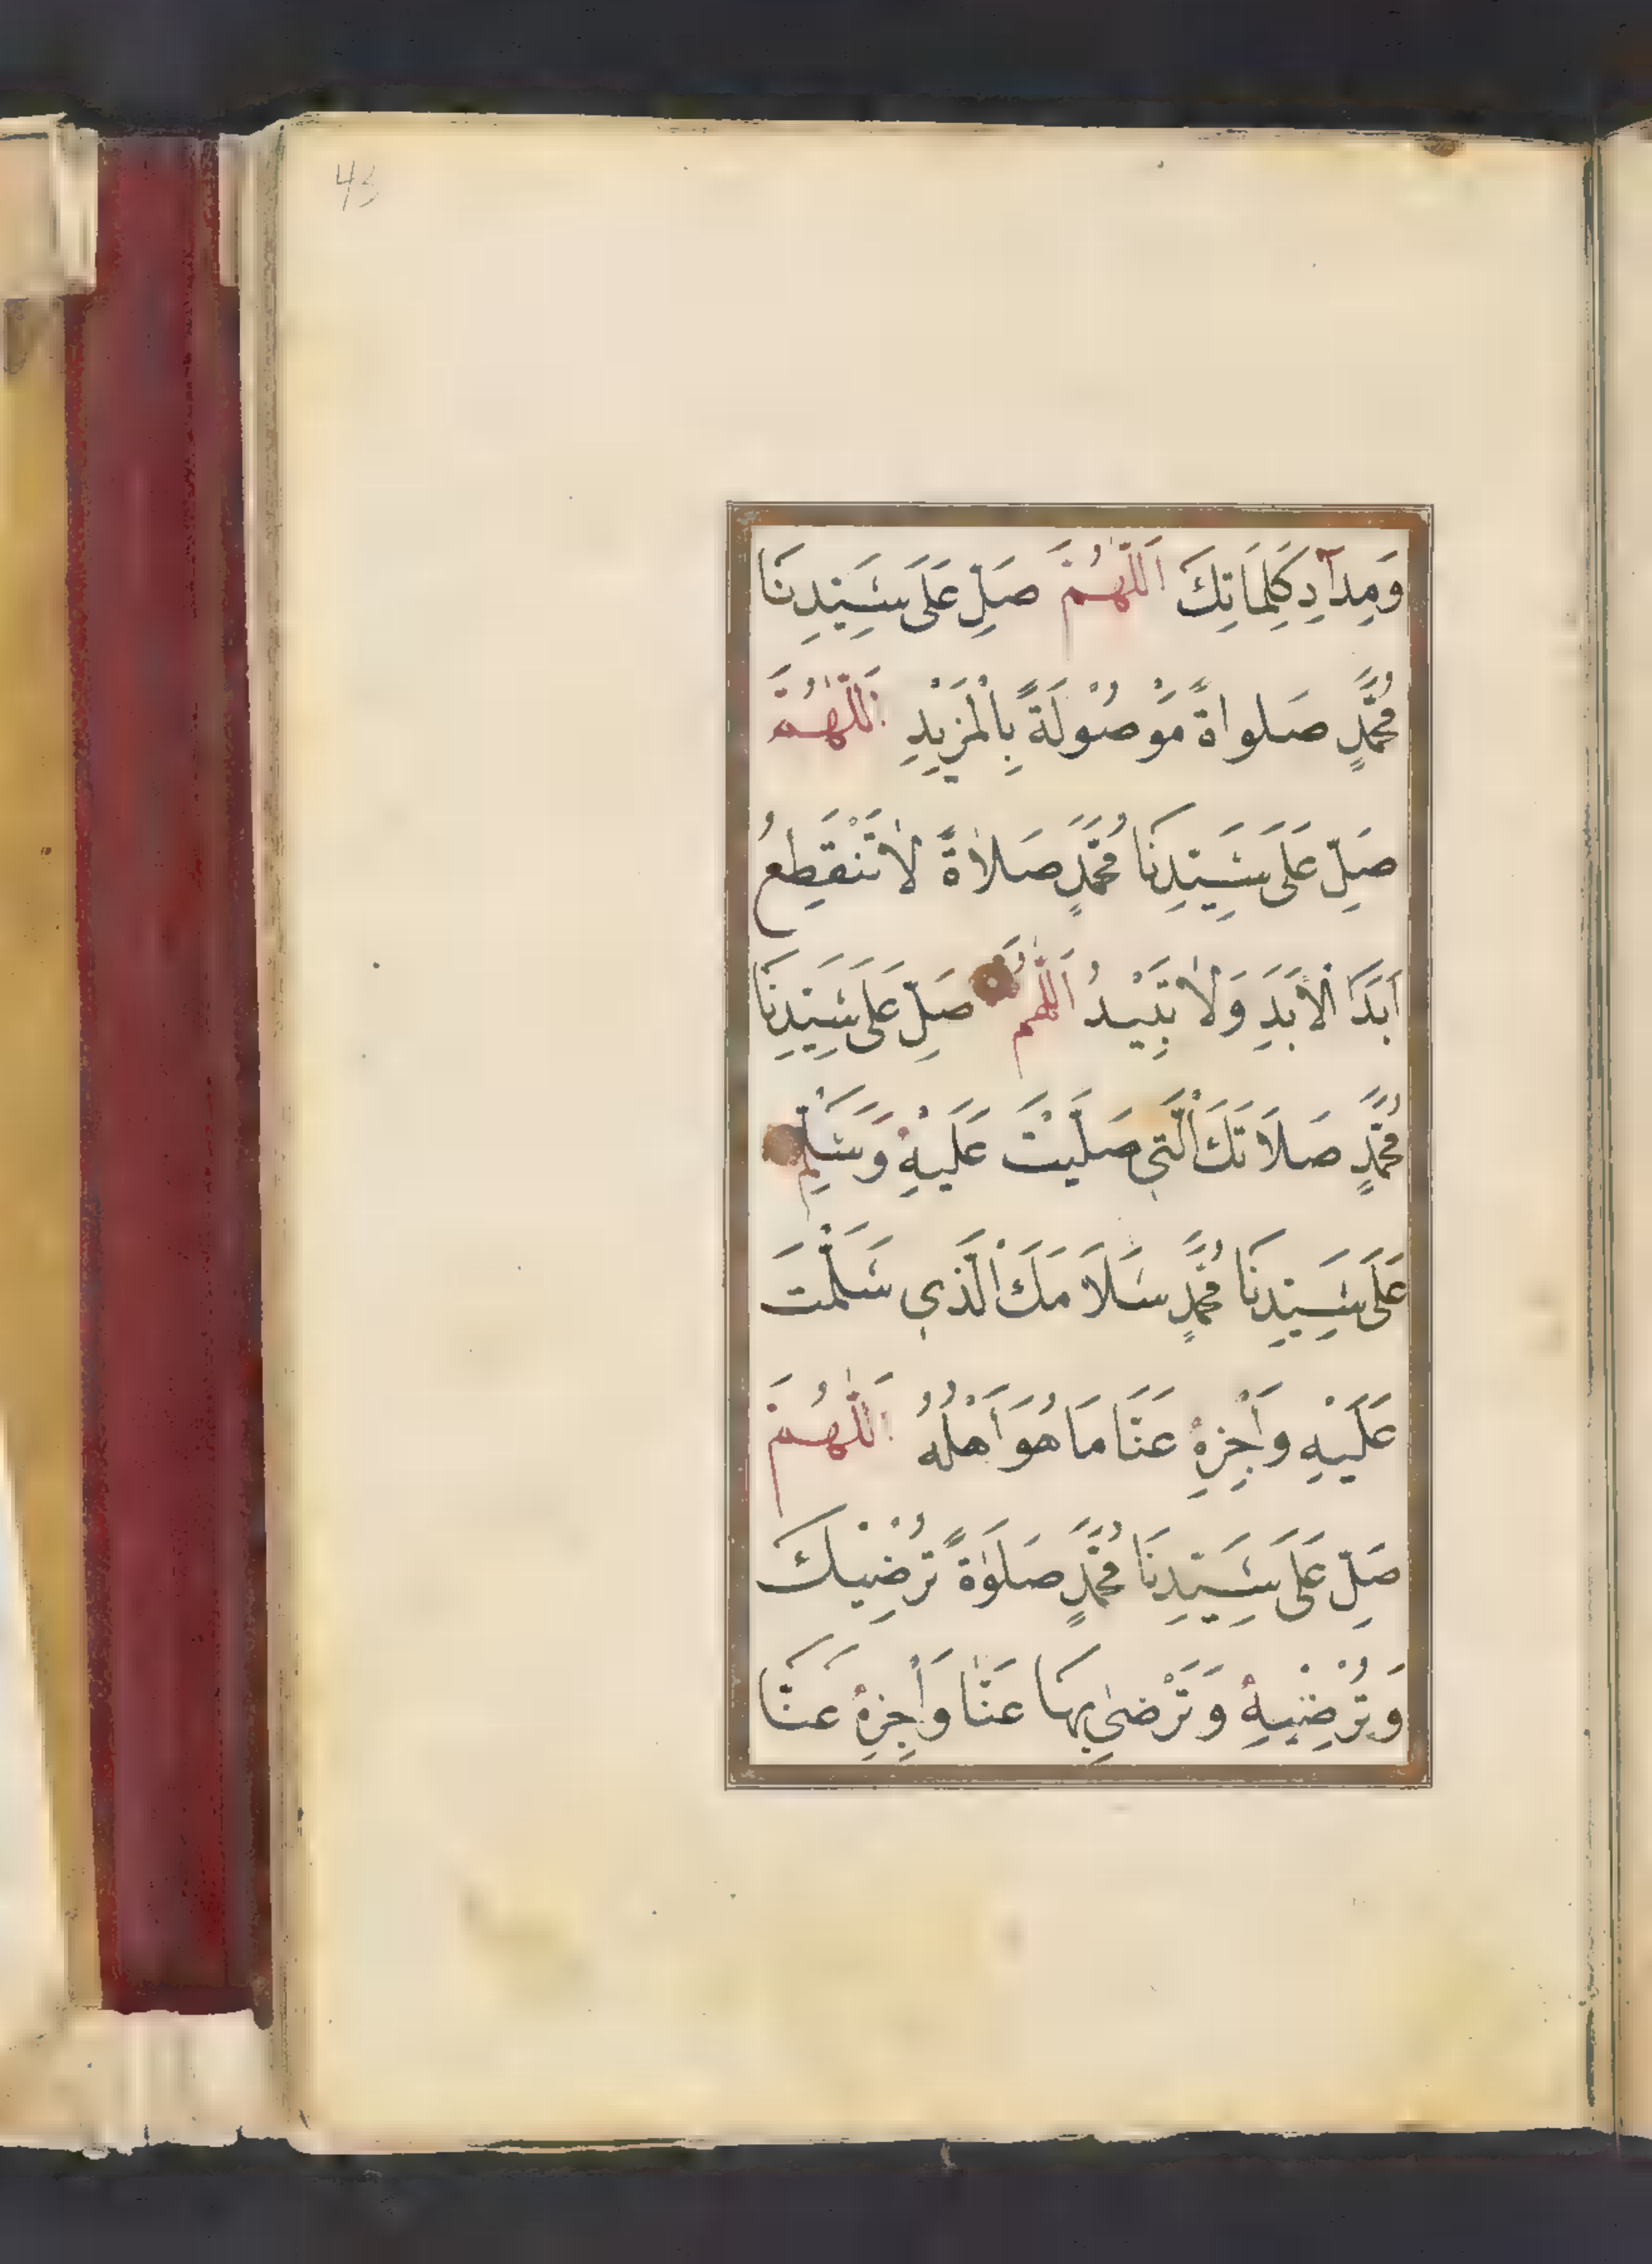 43
وَمِدَآدِ كَلِمَاتِكَ اَللّٰهُمَّ صَلِّ عَلَى سَيِّدِنَا
مُحَمَّدٍ صَلواةً مَوْصُوْلَةً بِالْمَزِيْدِ اَللّٰهُمَّ
صَلِّ عَلَى سَيِّدِنَا مُحَمَّدٍ صَلاٰةً لاٰ تَنْقَطِعُ
اَبَدَ الْاَبَدِ وَلاٰ تَبِيْدُ اَللّٰهُمَّ صَلِّ عَلَى سَيِّدِنَا
مُحَمَّدٍ صَلَاتَكَ الَّتِي صَلَّيْتَ عَلَيْهِ وَسَلِّمْ
عَلَى سَيِّدِنَا مُحَمَّدٍ سَلَامَكَ الَّذِي سَلَّمْتَ
عَلَيْهِ وَاَجْزِهِ عَنَّا مَا هُوَ اَهْلُهُ اَللّٰهُمَّ
صَلِّ عَلَى سَيِّدِنَا مُحَمَّدٍ صَلَوٰةً تُرْضِيْكَ
وَتُرْضِيْهِ وَتَرْضٰى بِهَا عَنَّا وَاَجْزِهِ عَنَّا